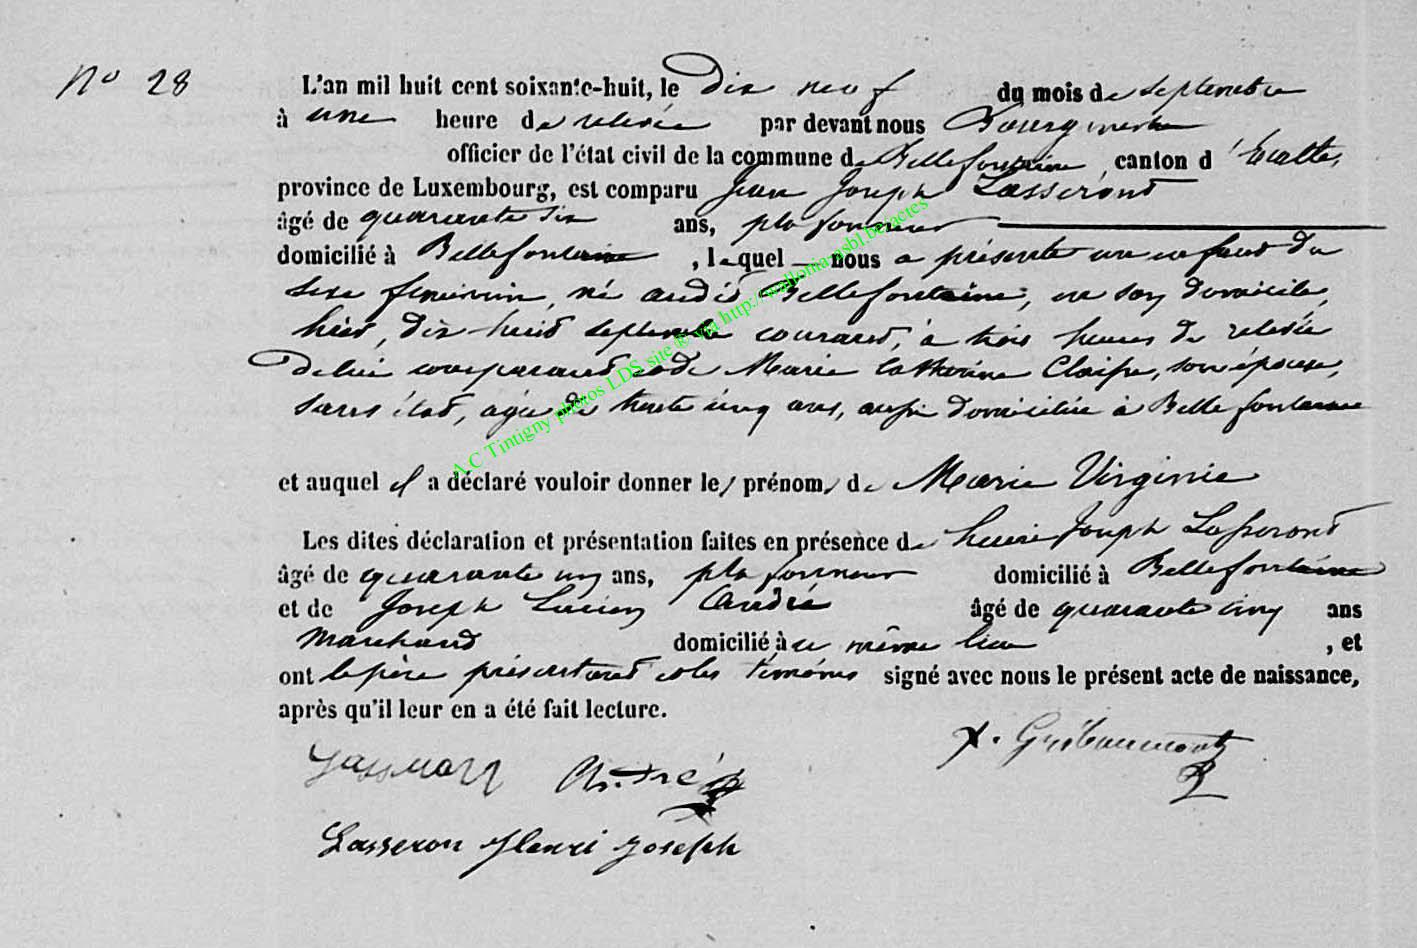 N° 28
L'an mil huit cent soixante-huit, le dix neuf du mois de septembre
à une heure de relevée par devant nous Bourgmestre
officier de l'état civil de la commune de Bellefontaine, canton d'Etalle,
province de Luxembourg, est comparu Jean Joseph Lasserond
âgé de quarante six ans, plafonneur
domicilié à Bellefontaine, lequel nous a présenté un enfant du
sexe féminin, né audit Bellefontaine, en son domicile,
hier, dix huit septembre courant, à trois heures de relevée
De lui comparant et de Marie Catherine Claisse, son épouse,
sans état, agée de trente cinq ans, aussi domiciliée à Bellefontaine
et auquel il a déclaré vouloir donner les prénoms de Marie Virginie
Les dites déclaration et présentation faites en présence de Henri Joseph Lasserond
âgé de quarante ans, plafonneur domicilié à Bellefontaine
et de Joseph Lucien André âgé de quarante cinq ans
Marchand domicilié à ce même lieu, et
ont le père présentant et les témoins signé avec nous le présent acte de naissance,
après qu'il leur en a été fait lecture.
André
Lasseron Henri Joseph
A.C Tintigny photos LDS site ® via http://wallonia-asbl.be/actes